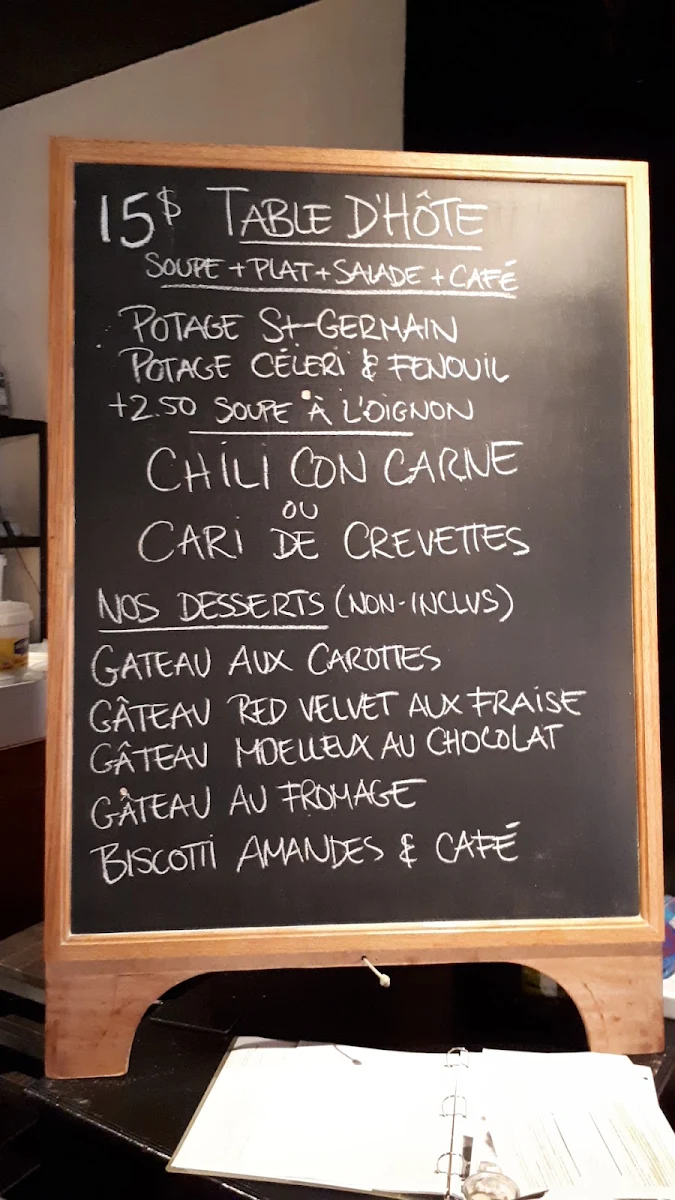 15$ TABLE D'HÔTE
SOUPE + PLAT + SALADE + CAFÉ
POTAGE St-GERMAIN
POTAGE CÉLERI & FENOUIL
+2.50 SOUPE À L'OIGNON
CHILI CON CARNE
OU
CARI DE CREVETTES
NOS DESSERTS (NON-INCLUS)
GATEAU AUX CAROTTES
GÂTEAU RED VELVET AUX FRAISE
GÂTEAU MOELLEUX AU CHOCOLAT
GÂTEAU AU FROMAGE
BISCOTTI AMANDES & CAFÉ